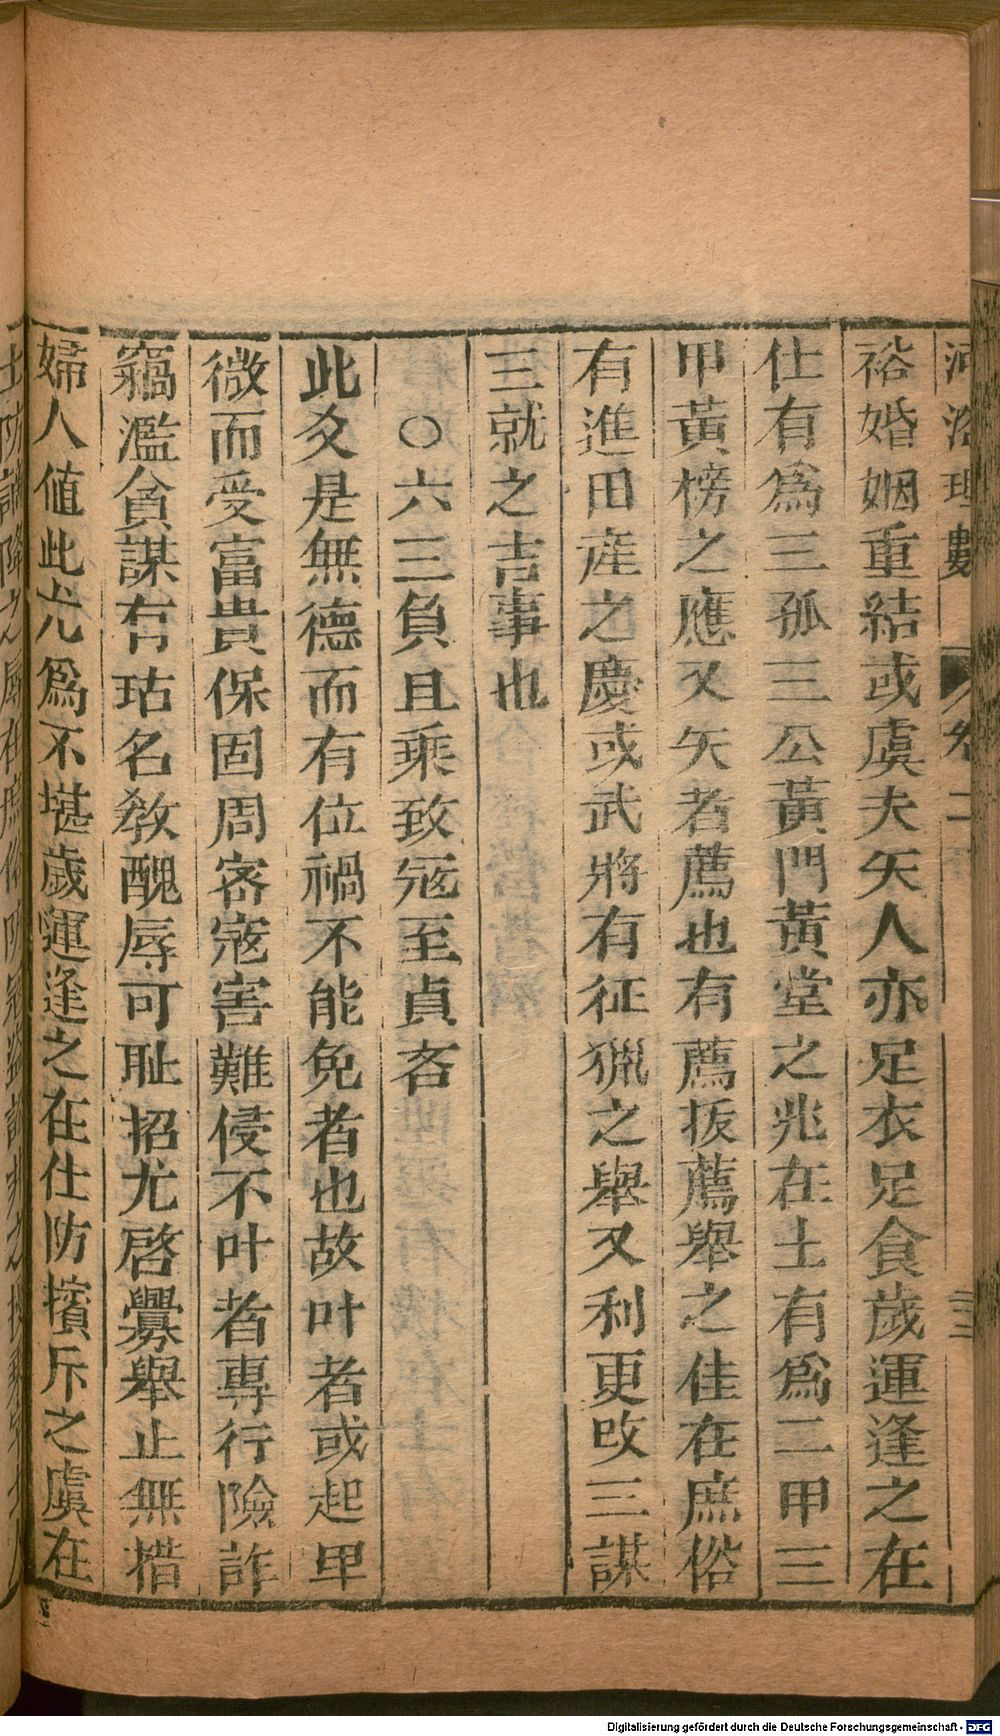 河洛理數 卷二 三
裕婚姻重結或虞夫矢人亦足衣足食歲運逢之在
仕有爲三孤三公黃門黃堂之兆在士有爲二甲三
甲黃榜之應又矢者薦也有薦拔薦舉之佳在庶俗
有進田産之慶或武將有征獵之舉又利更改三謀
三就之吉事也
○六三負且乘致宼至貞吝
此爻是無德而有位禍不能免者也故叶者或起卑
微而受富貴保固周宻宼害難侵不叶者專行險詐
竊濫貪謀有玷名敎醜辱可耻招尤啓釁舉止無措
婦人值此尤爲不堪歲運逢之在仕防擯斥之虞在
Digitalisierung gefördert durch die Deutsche Forschungsgemeinschaft - DFG